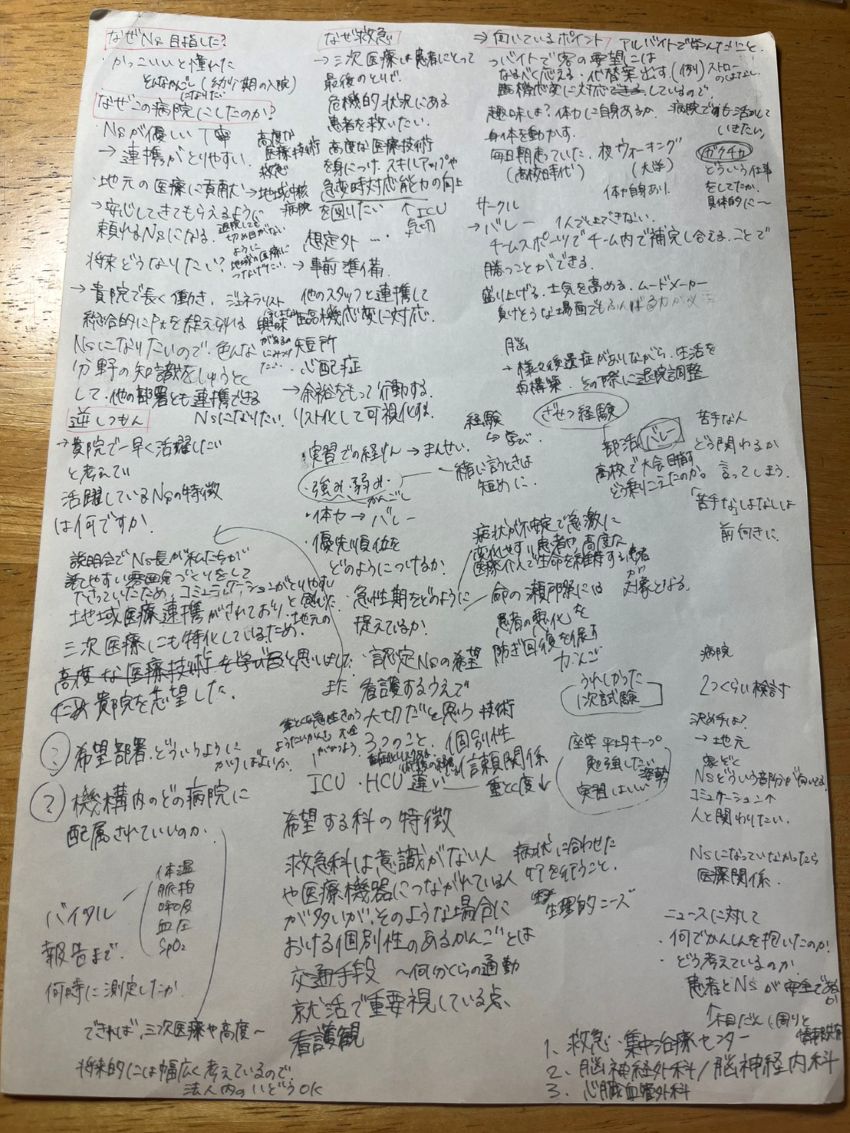 なぜNs目指した?
・かっこいいと憧れた
どんなかんごし(幼少期の入院)
になりたい
なぜこの病院にしたのか?
・Nsが優しい 丁寧
→連携がとりやすい
高度な
医療技術
救急
・地元の医療に貢献
→地域中核
病院
→安心してきてもらえるように
頼れるNsになる。
退院しても
切れ目がない
ように
地域の医療に
つなげたい
将来どうなりたい?
→貴院で長く働き、ジェネラリスト
総合的にPtを捉えられる
Nsになりたいので、色んな
分野の知識をしゅうとく
して、他の部署とも連携できる
Nsになりたい。
興味
があるのか
逆しつもん
→貴院で一早く活躍したい
と考えてい
活躍しているNsの特徴
は何ですか
説明会でNs長が私たちが
話しやすい雰囲気づくりをして
下さっていたため、コミュニケーションがとりやすい
と感じた
地域医療連携がされており、地元の
三次医療にも特化しているため、
高度な医療技術を学び
と思いました
ため貴院を志望した。
また
? 希望部署、どういうように
かけばよいか
? 機構内のどの病院に
配属されていいのか
バイタル
体温
脈拍
呼吸
血圧
SpO₂
報告まで
何時に測定したか
できれば、三次医療や高度〜
将来的には幅広く考えているので、
法人内のいどうOK
なぜ救急
→三次医療は患者にとって
最後のとりで。
危機的状況にある
患者を救いたい。
高度な医療技術
を身につけ、スキルアップや
急変時対応能力の向上
を図りたい
↑ICU
想定外…
→事前準備
他のスタッフと連携して
臨機応変に対応。
短所
・心配症
→余裕をもって行動する。
リスト化して可視化する
・実習での経けん→まんせい
・強み・弱み
かんごし
一緒に言うときは
短めに
経験
↳学び
・体力→バレー
・優先順位を
どのようにつけるか
・急性期をどのように
捉えているか
病状が不安定で急激に
変化しやすい患者や高度な
医療介入で生命を維持する患者
が対象となる。
命の瀬戸際にいる
患者の悪化を
防ぎ回復を促す
かんご
・認定Nsの希望
看護するうえで
大切だと思う
3つのこと
技術
個別性
信頼関係
ICU・HCU 違い
重とく度↓
希望する科の特徴
救急科は意識がない人
や医療機器につながれている人
が多いが、そのような場合に
おける個別性のあるかんごとは
病状に合わせた
ケアを行うこと。
生理的ニーズ
交通手段 〜何分くらの通勤
就活で重要視している点、
看護観
→向いているポイント
アルバイトで学んだこと
→バイトで客の要望には
なるべく応える・代替案出す
(例)ストロー
のはなし
臨機応変に対応できる、しているので、
病院でも活かして
いきたい。
趣味は?体力に自身あるか
身体を動かす。
毎日朝走っていた。
(高校時代)
夜ウォーキング
(大学)
体力自身あり。
ガクチカ
どういう仕事
をしてたか
具体的に〜
サークル
→バレー 1人じゃできない。
チームスポーツでチーム内で補完し合える。ことで
勝つことができる。
盛り上げる。士気を高める。ムードメーカー
負けそうな場面でもふんばる力が必要
脳
→様々な後遺症がありながら、生活を
再構築 その際に退院調整
ざせつ経験
部活 バレー
高校で大会目前
どう乗りこえたのか。
苦手な人
どう関わるか
言ってしまう。
「苦手なしはなしは
前向きに
うれしかった
1次試験
座学 平均キープ
勉強したい姿勢
実習はいい
病院
2つくらい検討
決め手は?
→地元
Nsどういう部分が向いてる
コミュケーション↑
人と関わりたい。
Nsになっていなかったら
医療関係。
ニュースに対して
・何でかんしんを抱いたのか
・どう考えているのか
患者とNsが安全であるか
↑木目だん(周りと
情報共有
1、救急・集中治療センター
2、脳神経外科/脳神経内科
3、心臓血管外科